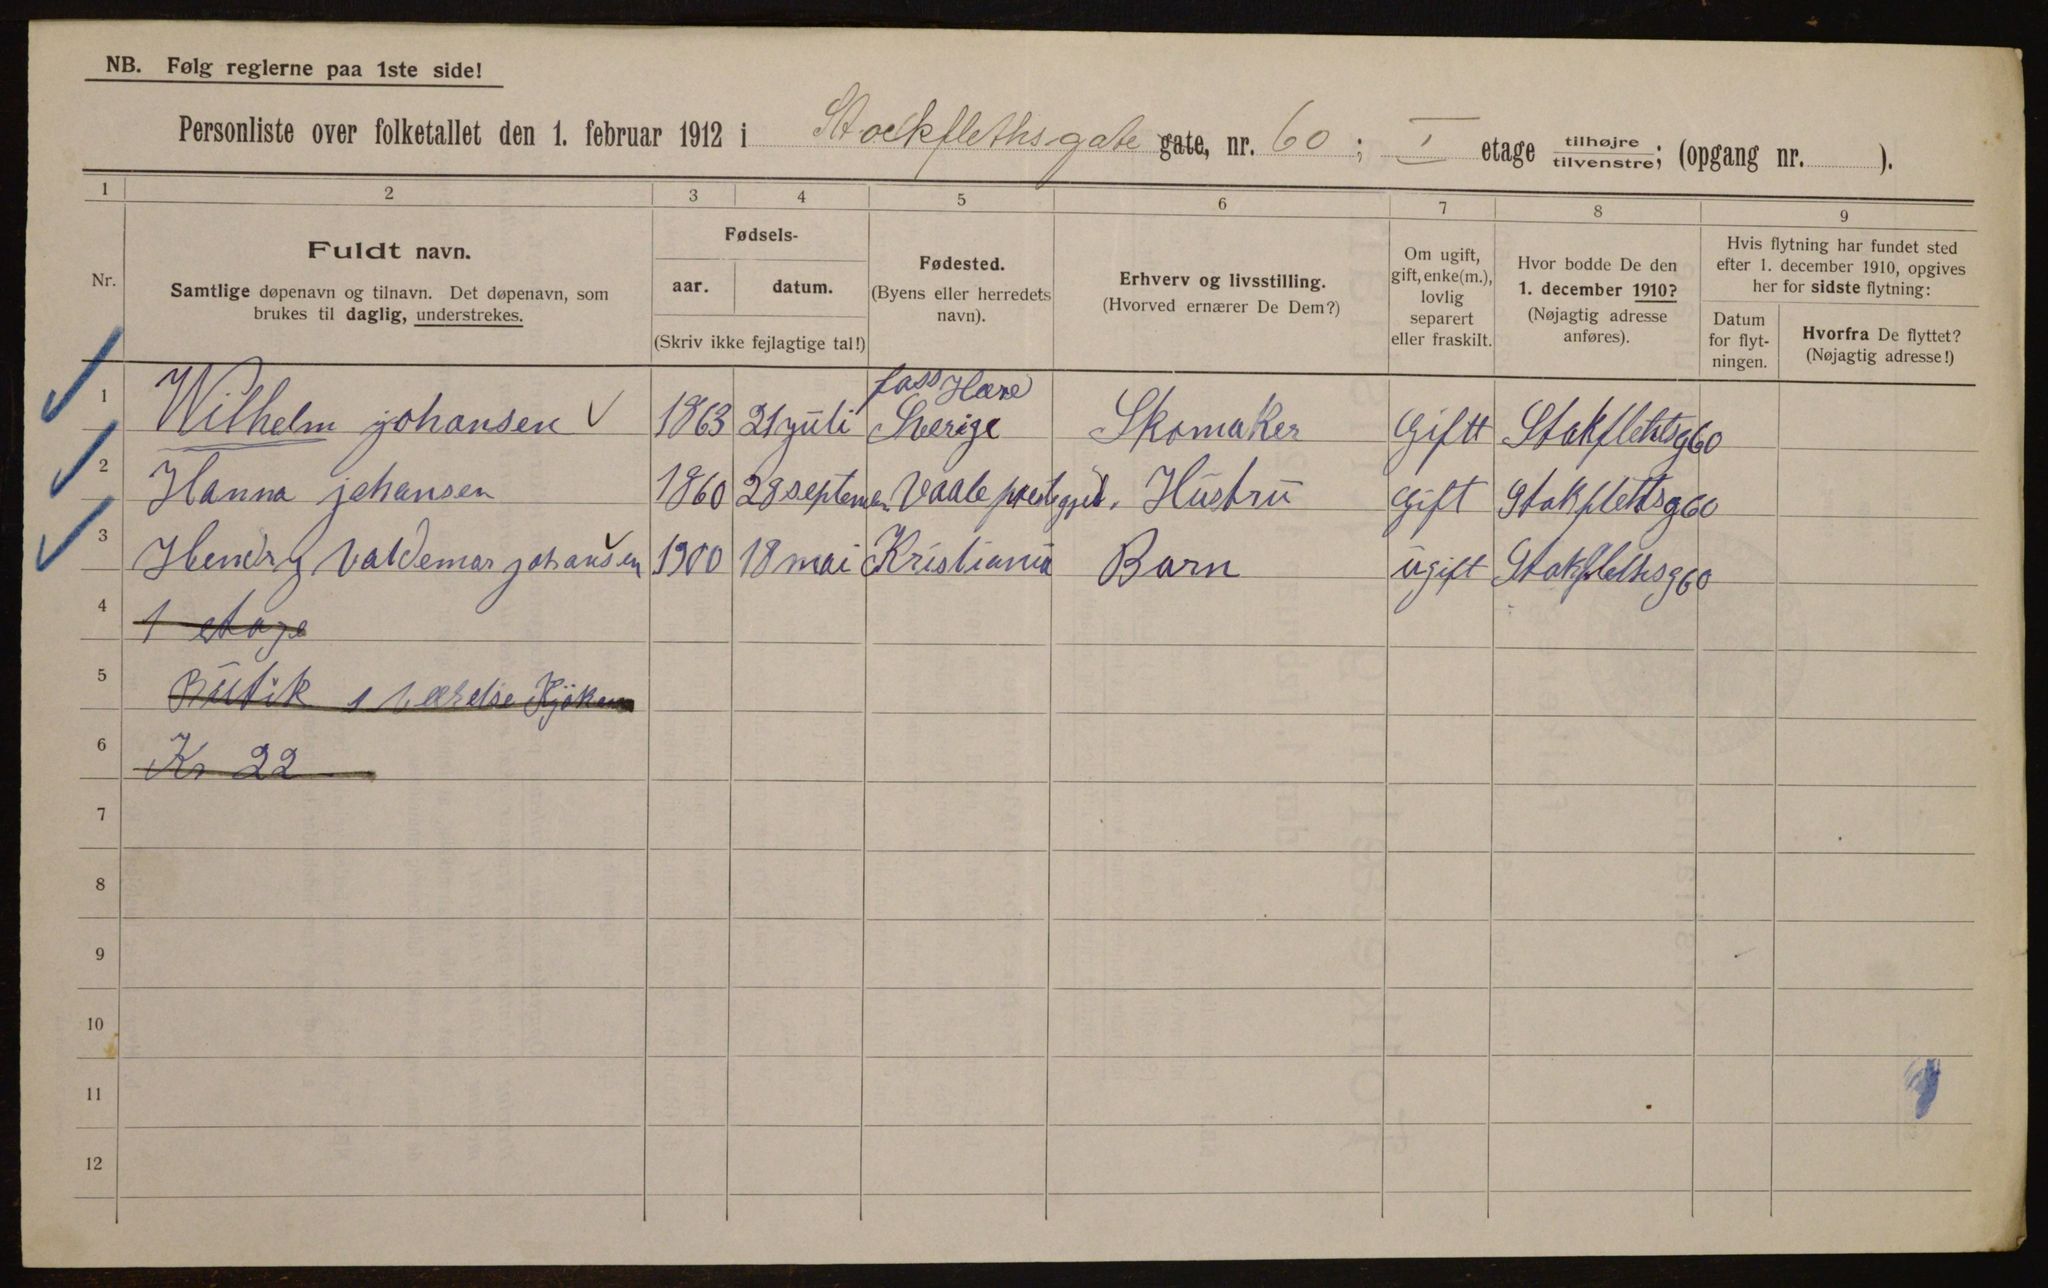 NB. Følg reglerne paa 1ste side!
Personliste over folketallet den 1. februar 1912 i Stockflethsgate gate, nr. 60; I etage tilhøjre tilvenstre; (opgang nr. ).
1 2 3 4 5 6 7 8 9
Nr.
Fuldt navn.
Samtlige døpenavn og tilnavn. Det døpenavn, som
brukes til daglig, understrekes.
Fødsels-
aar. datum.
(Skriv ikke fejlagtige tal!)
Fødested.
(Byens eller herredets
navn).
Erhverv og livsstilling.
(Hvorved ernærer De Dem?)
Om ugift,
gift, enke(m.),
lovlig
separert
eller fraskilt.
Hvor bodde De den
1. december 1910?
(Nøjagtig adresse
anføres).
Hvis flytning har fundet sted
efter 1. december 1910, opgives
her for sidste flytning:
Datum
for flyt-
ningen.
Hvorfra De flyttet?
(Nøjagtig adresse!)
1 Wilhelm johansen 1863 21 juli Sverige Skomaker Gift Stokflehtsg60
2 Hanna johansen 1860 28 septemer Vaale Hustru Gift Stokflehtsg60
3 Hendry Valdemar johansen 1900 18 mai Kristiania Barn ugift Stokflethsg60
4 1 etage
5 Butik 1 værelse Kjøken
6 Kr 22
7
8
9
10
11
12